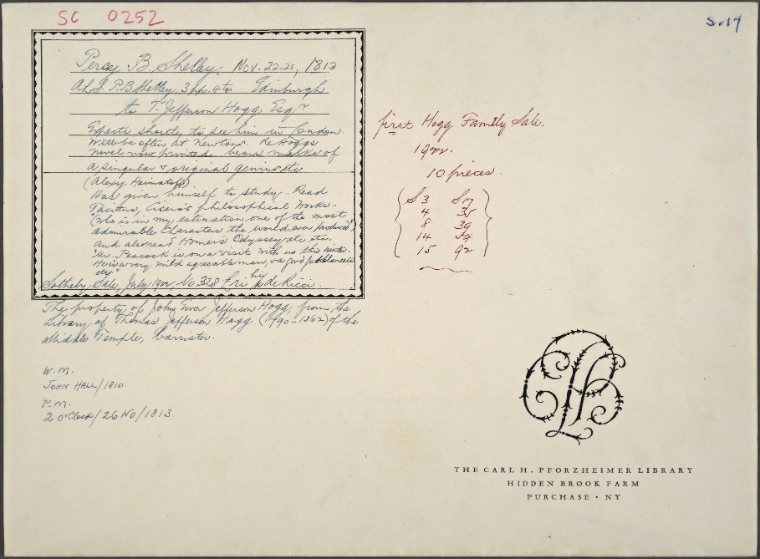 SC 0252
S.17
Percy B Shelley. Nov. 22-26, 1813
ALS P.B. Shelley 3pp. 4to Edinburgh
to T. Jefferson Hogg Esqr
Expects shortly to see him in London.
Will be often at Newtons. Re Hoggs
novel now printed bears marks of
a singular & original genius etc
(Alexy Haimatoff).
Has given himself to study. Read
Tacitus, Cicero's philosophical works.
"Who is in my estimation one of the most
admirable characters the world ever produced"
and also read Homer's Odyssey etc etc.
"Mr Peacock is on a visit with us this winter.
He is a very mild agreeable man, & a good scholar
Sotheby Sale, July 1922. No 328 de Ricci
The property of John Jefferson Hogg, from the
Library of Thomas Jefferson Hogg (1790-1862) of the
Middle Temple, barrister.
W.M.
JOHN HALL/1810
P.M.
2 O'Clock/26 NO/1813
first Hogg Family Sale.
1922.
10 pieces.
S3 S17
4 35
8 39
14 54
15 92
THE CARL H. PFORZHEIMER LIBRARY
HIDDEN BROOK FARM
PURCHASE • NY